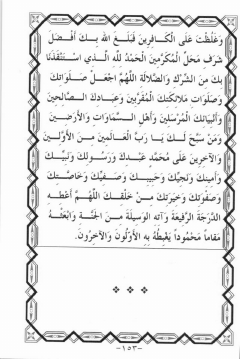 وَغَلَظْتَ عَلَى الْكَافِرِينَ فَبَلَغَ اللهُ بِكَ أَفْضَلَ
شَرَفِ مَحَلِّ الْمُكَرَّمِينَ الْحَمْدُ لِلَّهِ الَّذِي اسْتَنْقَذَنَا
بِكَ مِنَ الشِّرْكِ وَالضَّلَالَةِ اللَّهُمَّ اجْعَلْ صَلَوَاتِكَ
وَصَلَوَاتِ مَلَائِكَتِكَ الْمُقَرَّبِينَ وَعِبَادِكَ الصَّالِحِينَ
وَأَنْبِيَائِكَ الْمُرْسَلِينَ وَأَهْلِ السَّمَاوَاتِ وَالْأَرَضِينَ
وَمَنْ سَبَّحَ لَكَ يَا رَبَّ الْعَالَمِينَ مِنَ الْأَوَّلِينَ
وَالْآخِرِينَ عَلَى مُحَمَّدٍ عَبْدِكَ وَرَسُولِكَ وَنَبِيِّكَ
وَأَمِينِكَ وَنَجِيِّكَ وَحَبِيبِكَ وَصَفِيِّكَ وَخَاصَّتِكَ
وَصَفْوَتِكَ وَخِيَرَتِكَ مِنْ خَلْقِكَ اللَّهُمَّ أَعْطِهِ
الدَّرَجَةَ الرَّفِيعَةَ وَآتِهِ الْوَسِيلَةَ مِنَ الْجَنَّةِ وَابْعَثْهُ
مَقَاماً مَحْمُوداً يَغْبِطُهُ بِهِ الْأَوَّلُونَ وَالْآخِرُونَ.
-١٥٣-